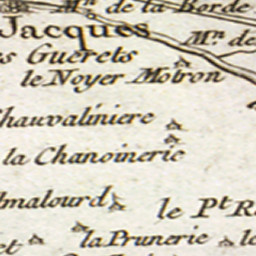 Mn. de la Borde
Jacques
Mn. de
s Guerets
le Noyer Motron
Chauvaliniere
la Chanoinerie
malourd
le Pt R
la Prunerie
le
et